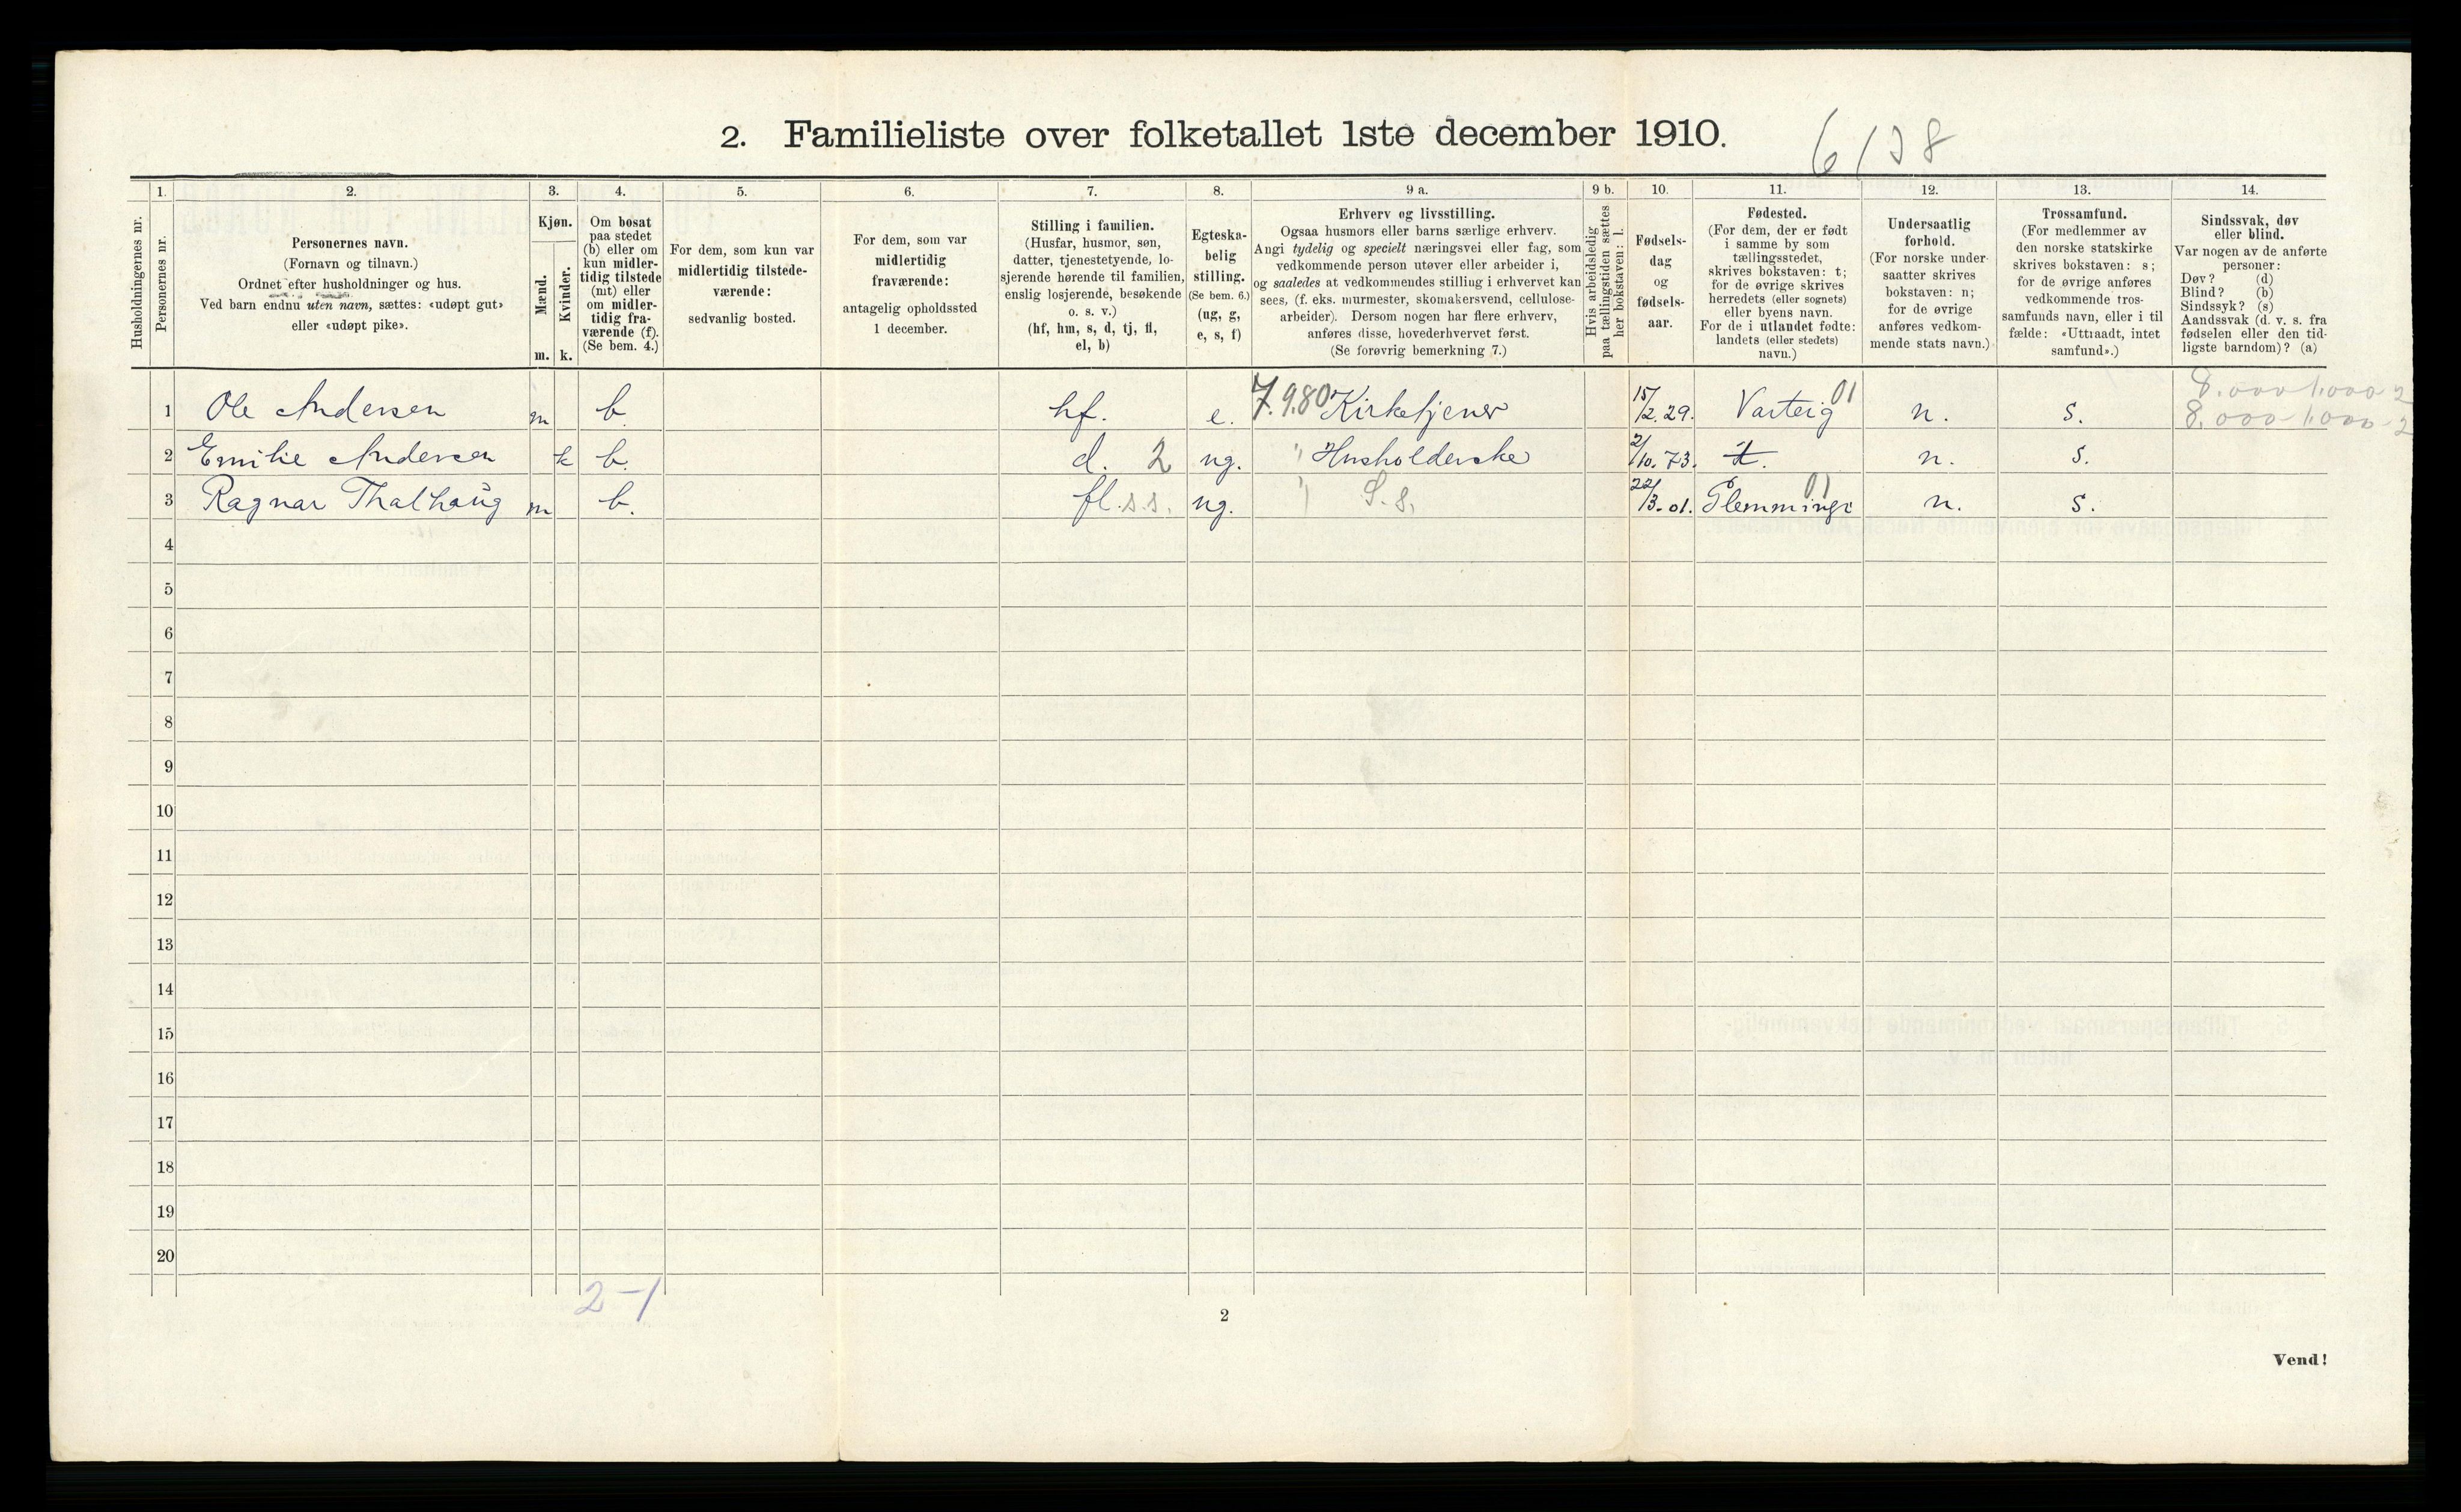 2. Familieliste over folketallet 1ste december 1910.
6138
1. 2. 3. 4. 5. 6. 7. 8. 9 a. 9 b. 10. 11. 12. 13. 14.
Husholdningernes nr.
Personernes nr.
Personernes navn.
(Fornavn og tilnavn.)
Ordnet efter husholdninger og hus.
Ved barn endnu uten navn, sættes: «udøpt gut»
eller «udøpt pike».
Kjøn.
Mænd.
Kvinder.
m. k.
Om bosat
paa stedet
(b) eller om
kun midler-
tidig tilstede
(mt) eller
om midler-
tidig fra-
værende (f).
(Se bem. 4.)
For dem, som kun var
midlertidig tilstede-
værende:
sedvanlig bosted.
For dem, som var
midlertidig
fraværende:
antagelig opholdssted
1 december.
Stilling i familien.
(Husfar, husmor, søn,
datter, tjenestetyende, lo-
sjerende hørende til familien,
enslig losjerende, besøkende
o. s. v.)
(hf, hm, s, d, tj, fl,
el, b)
Egteska-
belig
stilling.
(Se bem. 6.)
(ug, g,
e, s, f)
Erhverv og livsstilling.
Ogsaa husmors eller barns særlige erhverv.
Angi tydelig og specielt næringsvei eller fag, som
vedkommende person utøver eller arbeider i,
og saaledes at vedkommendes stilling i erhvervet kan
sees, (f. eks. murmester, skomakersvend, cellulose-
arbeider). Dersom nogen har flere erhverv,
anføres disse, hovederhvervet først.
(Se forøvrig bemerkning 7.)
Hvis arbeidsledig
paa tællingstiden sættes
her bokstaven: l.
Fødsels-
dag
og
fødsels-
aar.
Fødested.
(For dem, der er født
i samme by som
tællingsstedet,
skrives bokstaven: t;
for de øvrige skrives
herredets (eller sognets)
eller byens navn.
For de i utlandet fødte:
landets (eller stedets)
navn.)
Undersaatlig
forhold.
(For norske under-
saatter skrives
bokstaven: n;
for de øvrige
anføres vedkom-
mende stats navn.)
Trossamfund.
(For medlemmer av
den norske statskirke
skrives bokstaven: s;
for de øvrige anføres
vedkommende tros-
samfunds navn, eller i til
fælde: «Uttraadt, intet
samfund».)
Sindssvak, døv
eller blind.
Var nogen av de anførte
personer:
Døv? (d)
Blind? (b)
Sindssyk? (s)
Aandssvak (d. v. s. fra
fødselen eller den tid-
ligste barndom)? (a)
8.000 1.000 2
1 Ole Andersen m b. hf. e. 7.9.80 Kirketjener 15/2.29. Varteig 01 n. s. 8.000 1.000 2
2 Emilie Andersen k b. d. 2 ug. " Husholderske 2/10.73. t. n. s.
3 Ragnar Thalhaug m b. fl. s.s. ug. " S.s. 22/3.01. Glemminge 01 n. s.
4
5
6
7
8
9
10
11
12
13
14
15
16
17
18
19
20
2-1
2
Vend!